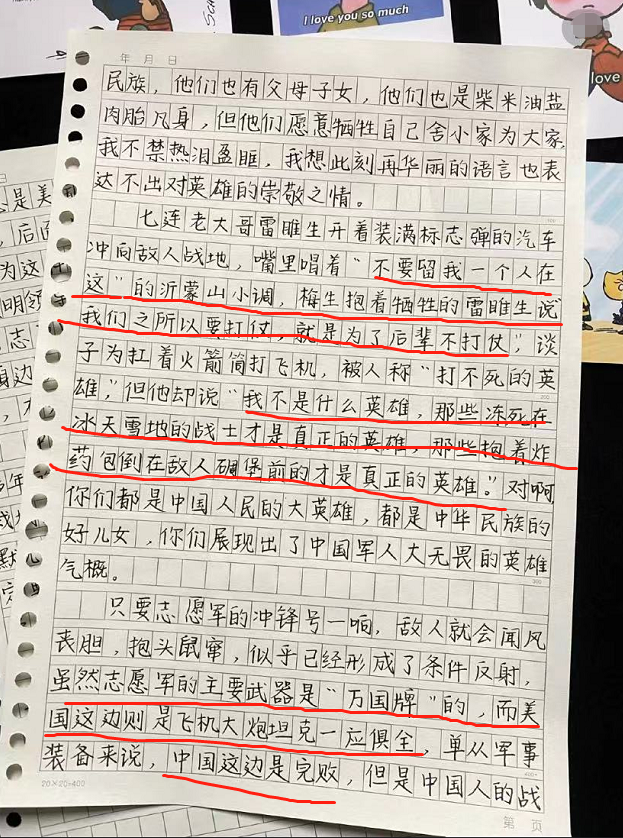 I love you so much
love
年 月 日
民族，他们也有父母子女，他们也是柴米油盐
肉胎凡身，但他们愿意牺牲自己舍小家为大家，
我不禁热泪盈眶，我想此刻再华丽的语言也表
达不出对英雄的崇敬之情。
七连老大哥雷睢生开着装满标志弹的汽车
冲向敌人战地，嘴里唱着“不要留我一个人在
这”的沂蒙山小调，梅生抱着牺牲的雷睢生说
我们之所以要打仗，就是为了后辈不打仗”，谈
子为扛着火箭筒打飞机，被人称“打不死的英
雄，”但他却说“我不是什么英雄，那些冻死在
冰天雪地的战士才是真正的英雄，那些抱着炸
药包倒在敌人碉堡前的才是真正的英雄。”对啊
你们都是中国人民的大英雄，都是中华民族的
好儿女，你们展现出了中国军人大无畏的英雄
气概。
只要志愿军的冲锋号一响，敌人就会闻风
丧胆，抱头鼠窜，似乎已经形成了条件反射，
虽然志愿军的主要武器是“万国牌”的，而美
国这边则是飞机大炮坦克一应俱全，单从军事
装备来说，中国这边是完败，但是中国人的战
20×20=400
第 页